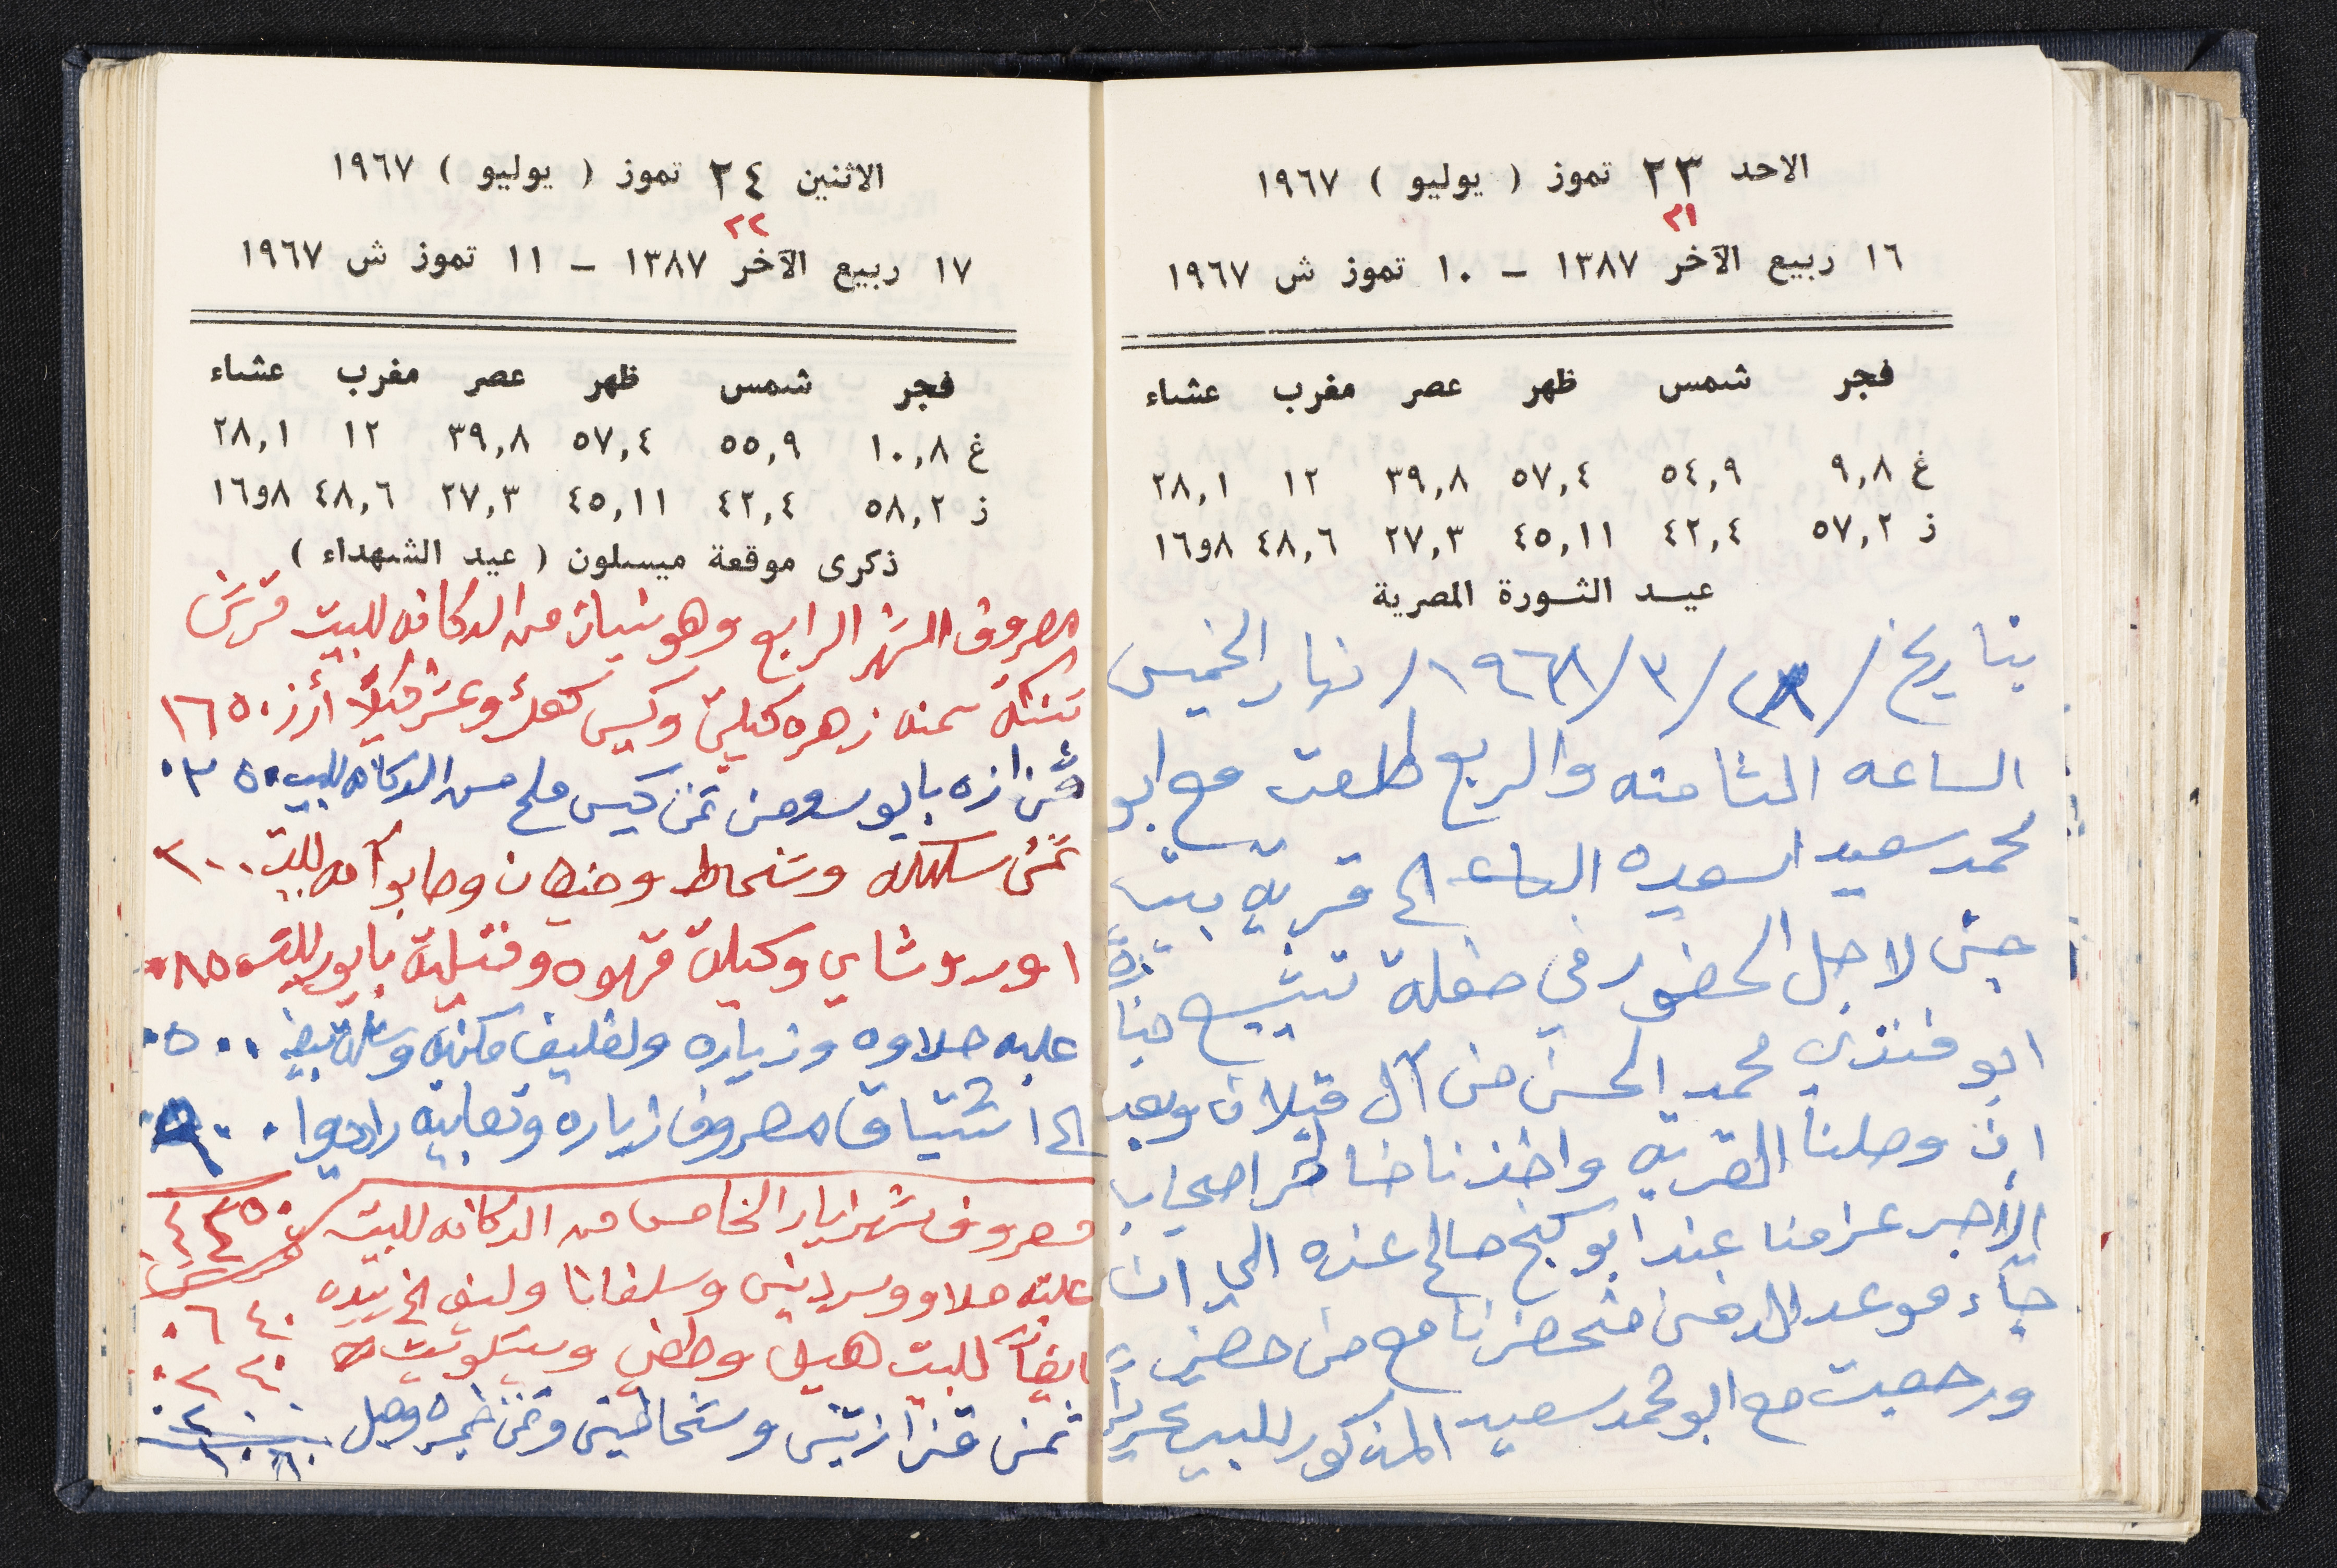 الاحد ٢٣ تموز ( يوليو ) ١٩٦٧
٢١
١٦ ربيع الآخر ١٣٨٧ – ١٠ تموز ش ١٩٦٧
فجر شمس ظهر عصر مغرب عشاء
غ ٩,٨ ٥٤,٩ ٥٧,٤ ٣٩,٨ ١٢ ٢٨,١
ز ٥٧,٢ ٤٢,٤ ٤٥,١١ ٢٧,٣ ٤٨,٦ ٨و١٦
عيد الثورة المصرية
بتاريخ /٢٨/٣/١٩٦٨/ نهار الخميس
الساعه الثامنه والربع طلعت مع ابو
محمد سعيد اسعيده الى قرية بيت
جن لاجل الحضور في حفلة تشييع جنازة
ابو فندي محمد الحسن من آل قبلان وبعد
ان وصلنا القريه واخذنا خاطر اصحاب
الأجر عزمنا عند ابو كنج صالح عزه الى ان
جآء موعد الدفن فحضرنا مع من حضر
ورجعت مع ابو محمد سعيد المذكور للبيت
الاثنين ٢٤ تموز ( يوليو ) ١٩٦٧
٢٢
١٧ ربيع الآخر ١٣٨٧ – ١١ تموز ش ١٩٦٧
فجر شمس ظهر عصر مغرب عشاء
غ ١٠,٨ ٥٥,٩ ٥٧,٤ ٣٩,٨ ١٢ ٢٨,١
ز ٥٨,٢ ٤٢,٤ ٤٥,١١ ٢٧,٣ ٤٨,٦ ٨و١٦
ذكرى موقعة ميسلون ( عيد الشهداء )
مصروف الشهر الرابع وهو نيسان من الدكانه للبيت قرش
تنكة سمنه زهره كيلين وكيس وعشر كيلو أرز ١٦٥٠
قزازه بابور ومن ثمن كيس ملح من الدكانه للبيت ٠٣٥٠
ثمن وشحاط وصابون للبيت ٢٠٠
شاي وكيلة قهوه وفتيلة بابور للبيت ٠٨٥٠
علبه حلاوه وزياره ٠٥٠٠
مصروف زياره
مصروف شهر ايار الخامس من الدكانه للبيت ٤٤٥٠
علبة حلاوه وسردين وليف ٠٦٤٠
ايضاً للبيت هيل وبسكوت ٠٢٤٠
ثمن قزازتين وشحاطين وثمن ٠٢٠٠